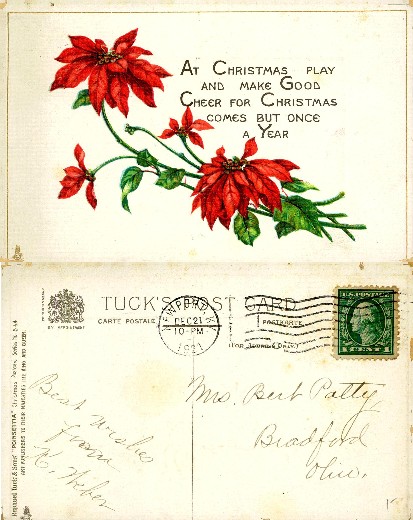 At Christmas play
and make Good
Cheer for Christmas
comes but once
a Year
TUCK'S POST CARD
CARTE POSTALE
POSTKARTE
BY APPOINTMENT
NEWPORT
DEC 21
10-PM
1921
U.S. POSTAGE
1 CENT 1
Raphael Tuck & Sons' "POINSETTIA" Christmas Postcard Series N
ART PUBLISHERS TO THEIR MAJESTIES THE KING AND QUEEN.
Best Wishes
from
Mrs. Bert Patty
Bradford
Ohio.